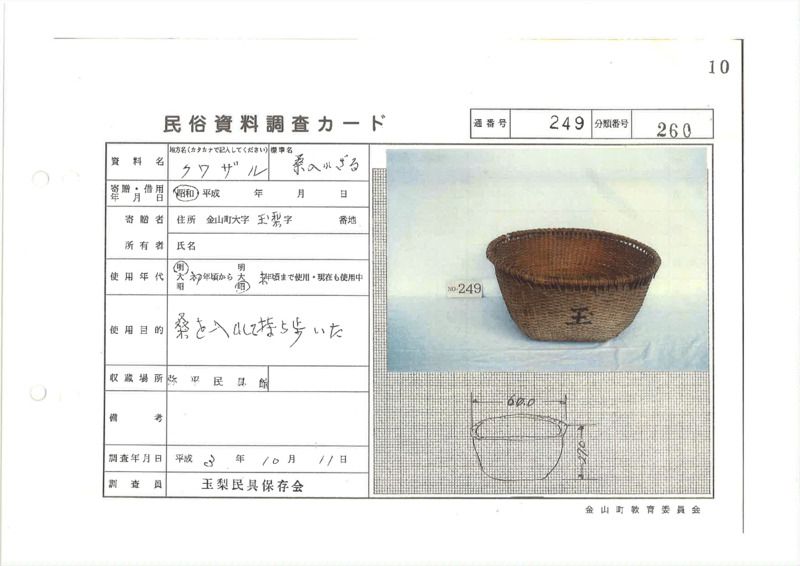 10
民俗資料調査カード
通番号 249 分類番号 260
資料名 地方名(カタカナで記入してください) クワザル 標準名 桑入れざる
寄贈・借用年月日 昭和 平成 年 月 日
寄贈者 住所 金山町大字 玉梨 字 番地
所有者 氏名
使用年代 明大昭 初年頃から 明大昭 年頃まで使用・現在も使用中
使用目的 桑を入れて持ち歩いた
収蔵場所 平民具館
備考
調査年月日 平成 3 年 10 月 11 日
調査員 玉梨民具保存会
NO-249
玉
60.0
金山町教育委員会